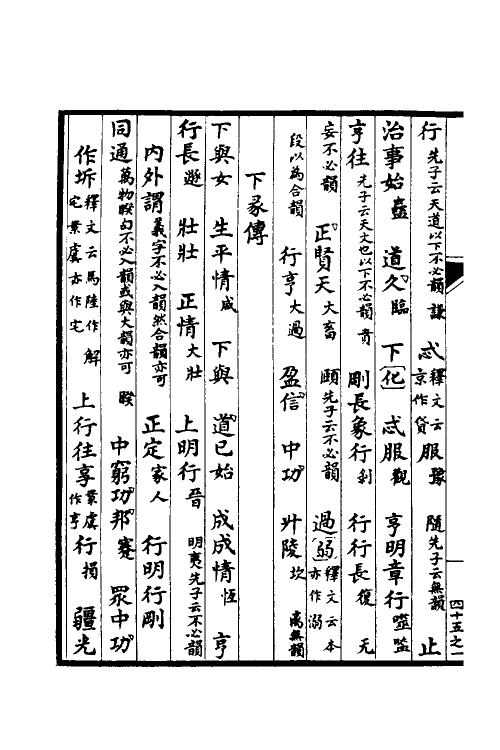 行先子云天道以下不必韻謙　忒釋文云京作貸服豫　隨先子云無韻　止
治事始蠱　道久臨　下化　忒服觀　亨明章行噬嗑
亨往先子云天文也以下不必韻賁　剛長象行剝　行行長復　无
妄不必韻　正賢天大畜　頤先子云不必韻　過弱釋文云本亦作溺
段以為合韻　行亨大過　盈信　中功　升陵坎　离無韻
下彖傳
下與女　生平情咸　下與　道已始　成成情恆　亨
行長遯　壯壯　正情大壯　上明行晉　明夷先子云不必韻
內外謂義字不必入韻然合韻亦可　正定家人　行明行剛
同通萬物睽句不必入韻或與大韻亦可　睽　中窮功邦蹇　眾中功
作坼釋文云馬陸作宅業虞亦作宅　解　上行往享業虞作亨行損　疆光
四十五之一